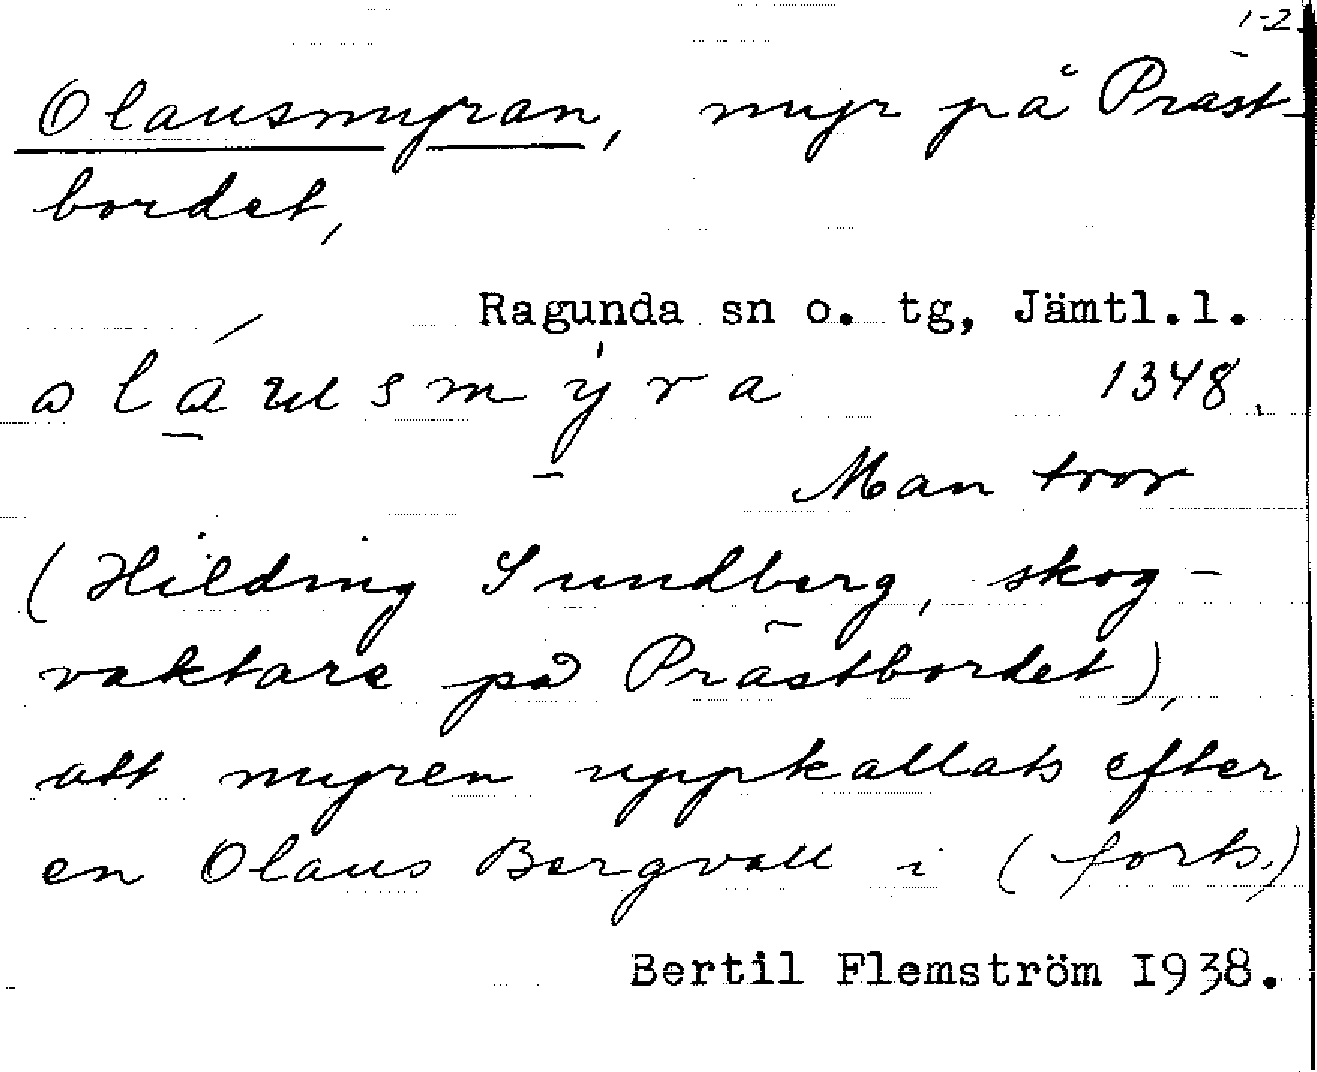 1-2.
Olausmyran, myr på Präst-
bordet,
Ragunda sn o. tg, Jämtl.l.
oláusmy̍ra 1348.
Man tror
(Hilding Sundberg, skog-
vaktare på Prästbordet),
att myren uppkallats efter
en Olaus Bergvall i (forts.)
Bertil Flemström 1938.